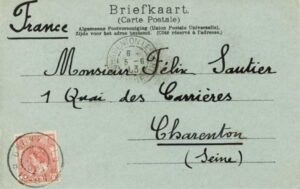 Briefkaart.
(Carte Postale)
France
Algemeene Postvereeniging (Union Postale Universelle).
Zijde voor het adres bestemd. (Côté réservé à l'adresse.)
Monsieur Félix Sautier
1 Quai des Carrières
Charenton
(Seine)